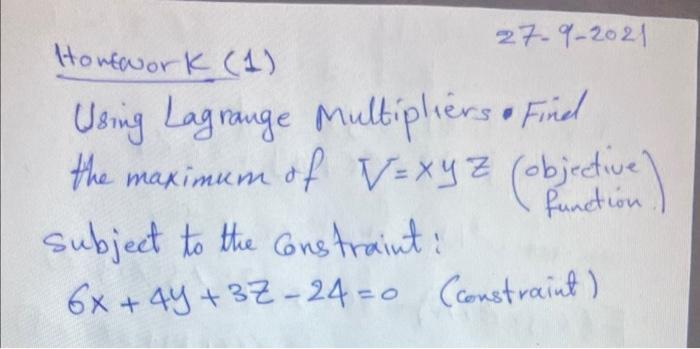 27-9-2021
Homework (1)
Using Lagrange Multipliers. Find
the maximum of V=xyz (objective function.)
subject to the constraint:
6x + 4y + 3z - 24 = 0 (constraint)